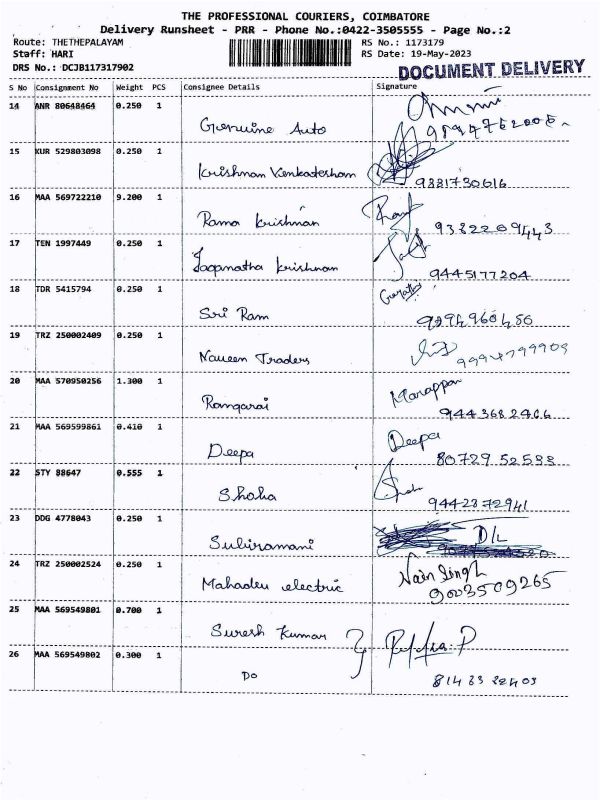 THE PROFESSIONAL COURIERS, COIMBATORE
Delivery Runsheet - PRR - Phone No.:0422-3505555 - Page No.:2
Route: THETHEPALAYAM
Staff: HARI
DRS No.: DCJB117317902
RS No.: 1173179
RS Date: 19-May-2023
DOCUMENT DELIVERY
S No Consignment No Weight PCS Consignee Details Signature
14 ANR 80648464 0.250 1
Genuine Auto
15 KUR 529803098 0.250 1
Krishnan Venkatesham 9381730616
16 MAA 569722210 9.200 1
Rama Krishnan 9382209443
17 TEN 1997449 0.250 1
krishnan 9445177204
18 TDR 5415794 0.250 1
Sri Ram
19 TRZ 250002409 0.250 1
Naveen Traders 9994799909
20 MAA 570950256 1.300 1
Rangarai Marappan
21 MAA 569599861 0.410 1
Deepa Deepa
80729 52533
22 STY 88647 0.555 1
Shoha 9442372941
23 DDG 4778043 0.250 1
Subiramani D/L
24 TRZ 250002524 0.250 1
Mahadev electric Nain Singh
9003509265
25 MAA 569549801 0.700 1
Suresh Kumar
26 MAA 569549802 0.300 1
Do 81433 22403